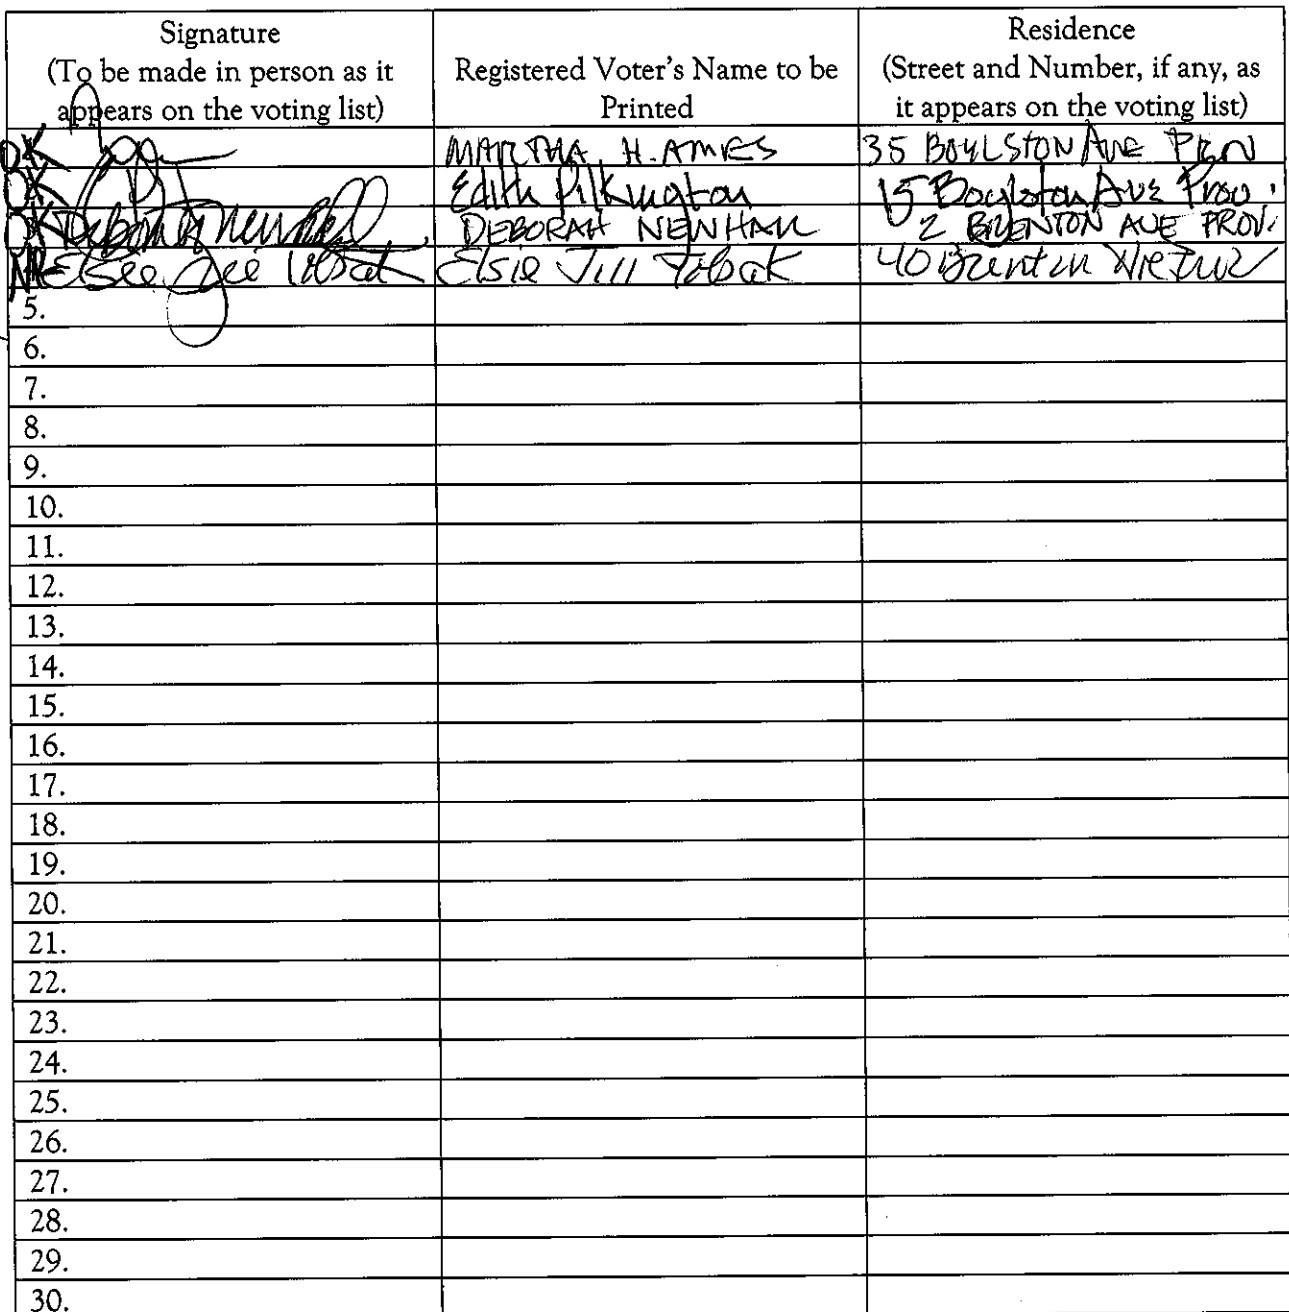 Signature
(To be made in person as it
appears on the voting list)
Registered Voter's Name to be
Printed
Residence
(Street and Number, if any, as
it appears on the voting list)
OK MARTHA H. AMES 35 BOYLSTON AVE
OK Edith Pilkington 15 Boylston Ave Prov.
OK Deborah Newhall DEBORAH NEWHALL 2 BRENTON AVE PROV.
Elsie Jill Elsie Jill Tobak 40 Brenton
5.
6.
7.
8.
9.
10.
11.
12.
13.
14.
15.
16.
17.
18.
19.
20.
21.
22.
23.
24.
25.
26.
27.
28.
29.
30.